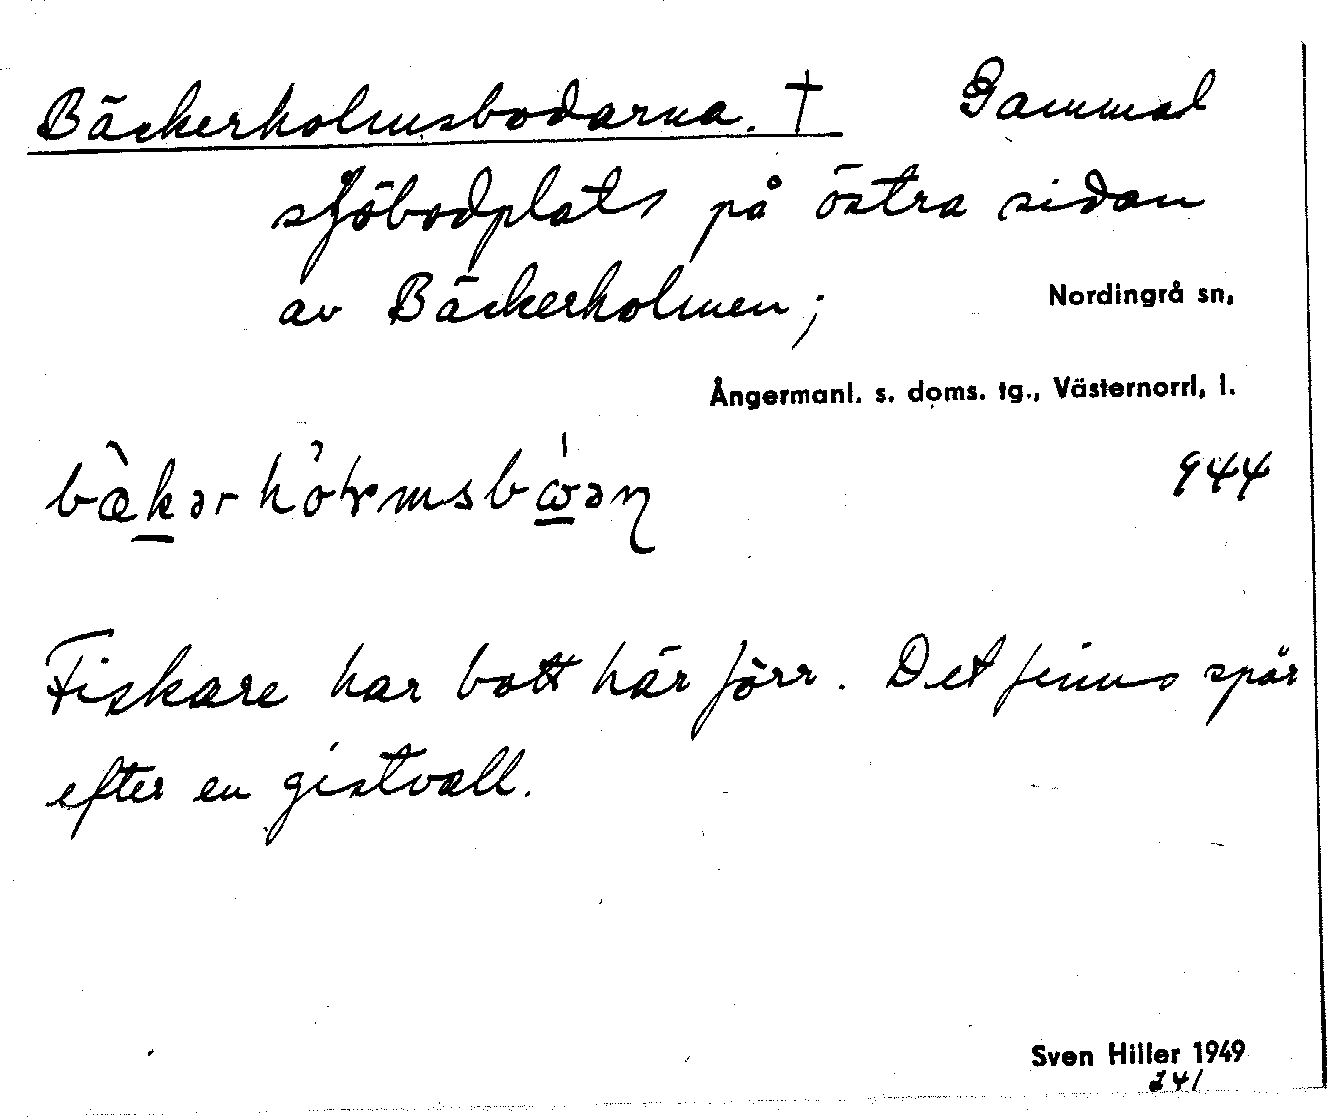 Bäckerholmsbodarna. † Gammal
sjöbodplats på östra sidan
av Bäckerholmen;
Nordingrå sn,
Ångermanl. s. doms. tg., Västernorrl, l.
944
Fiskare har bott här förr. Det finns spår
efter en gistvall.
Sven Hiller 1949
241